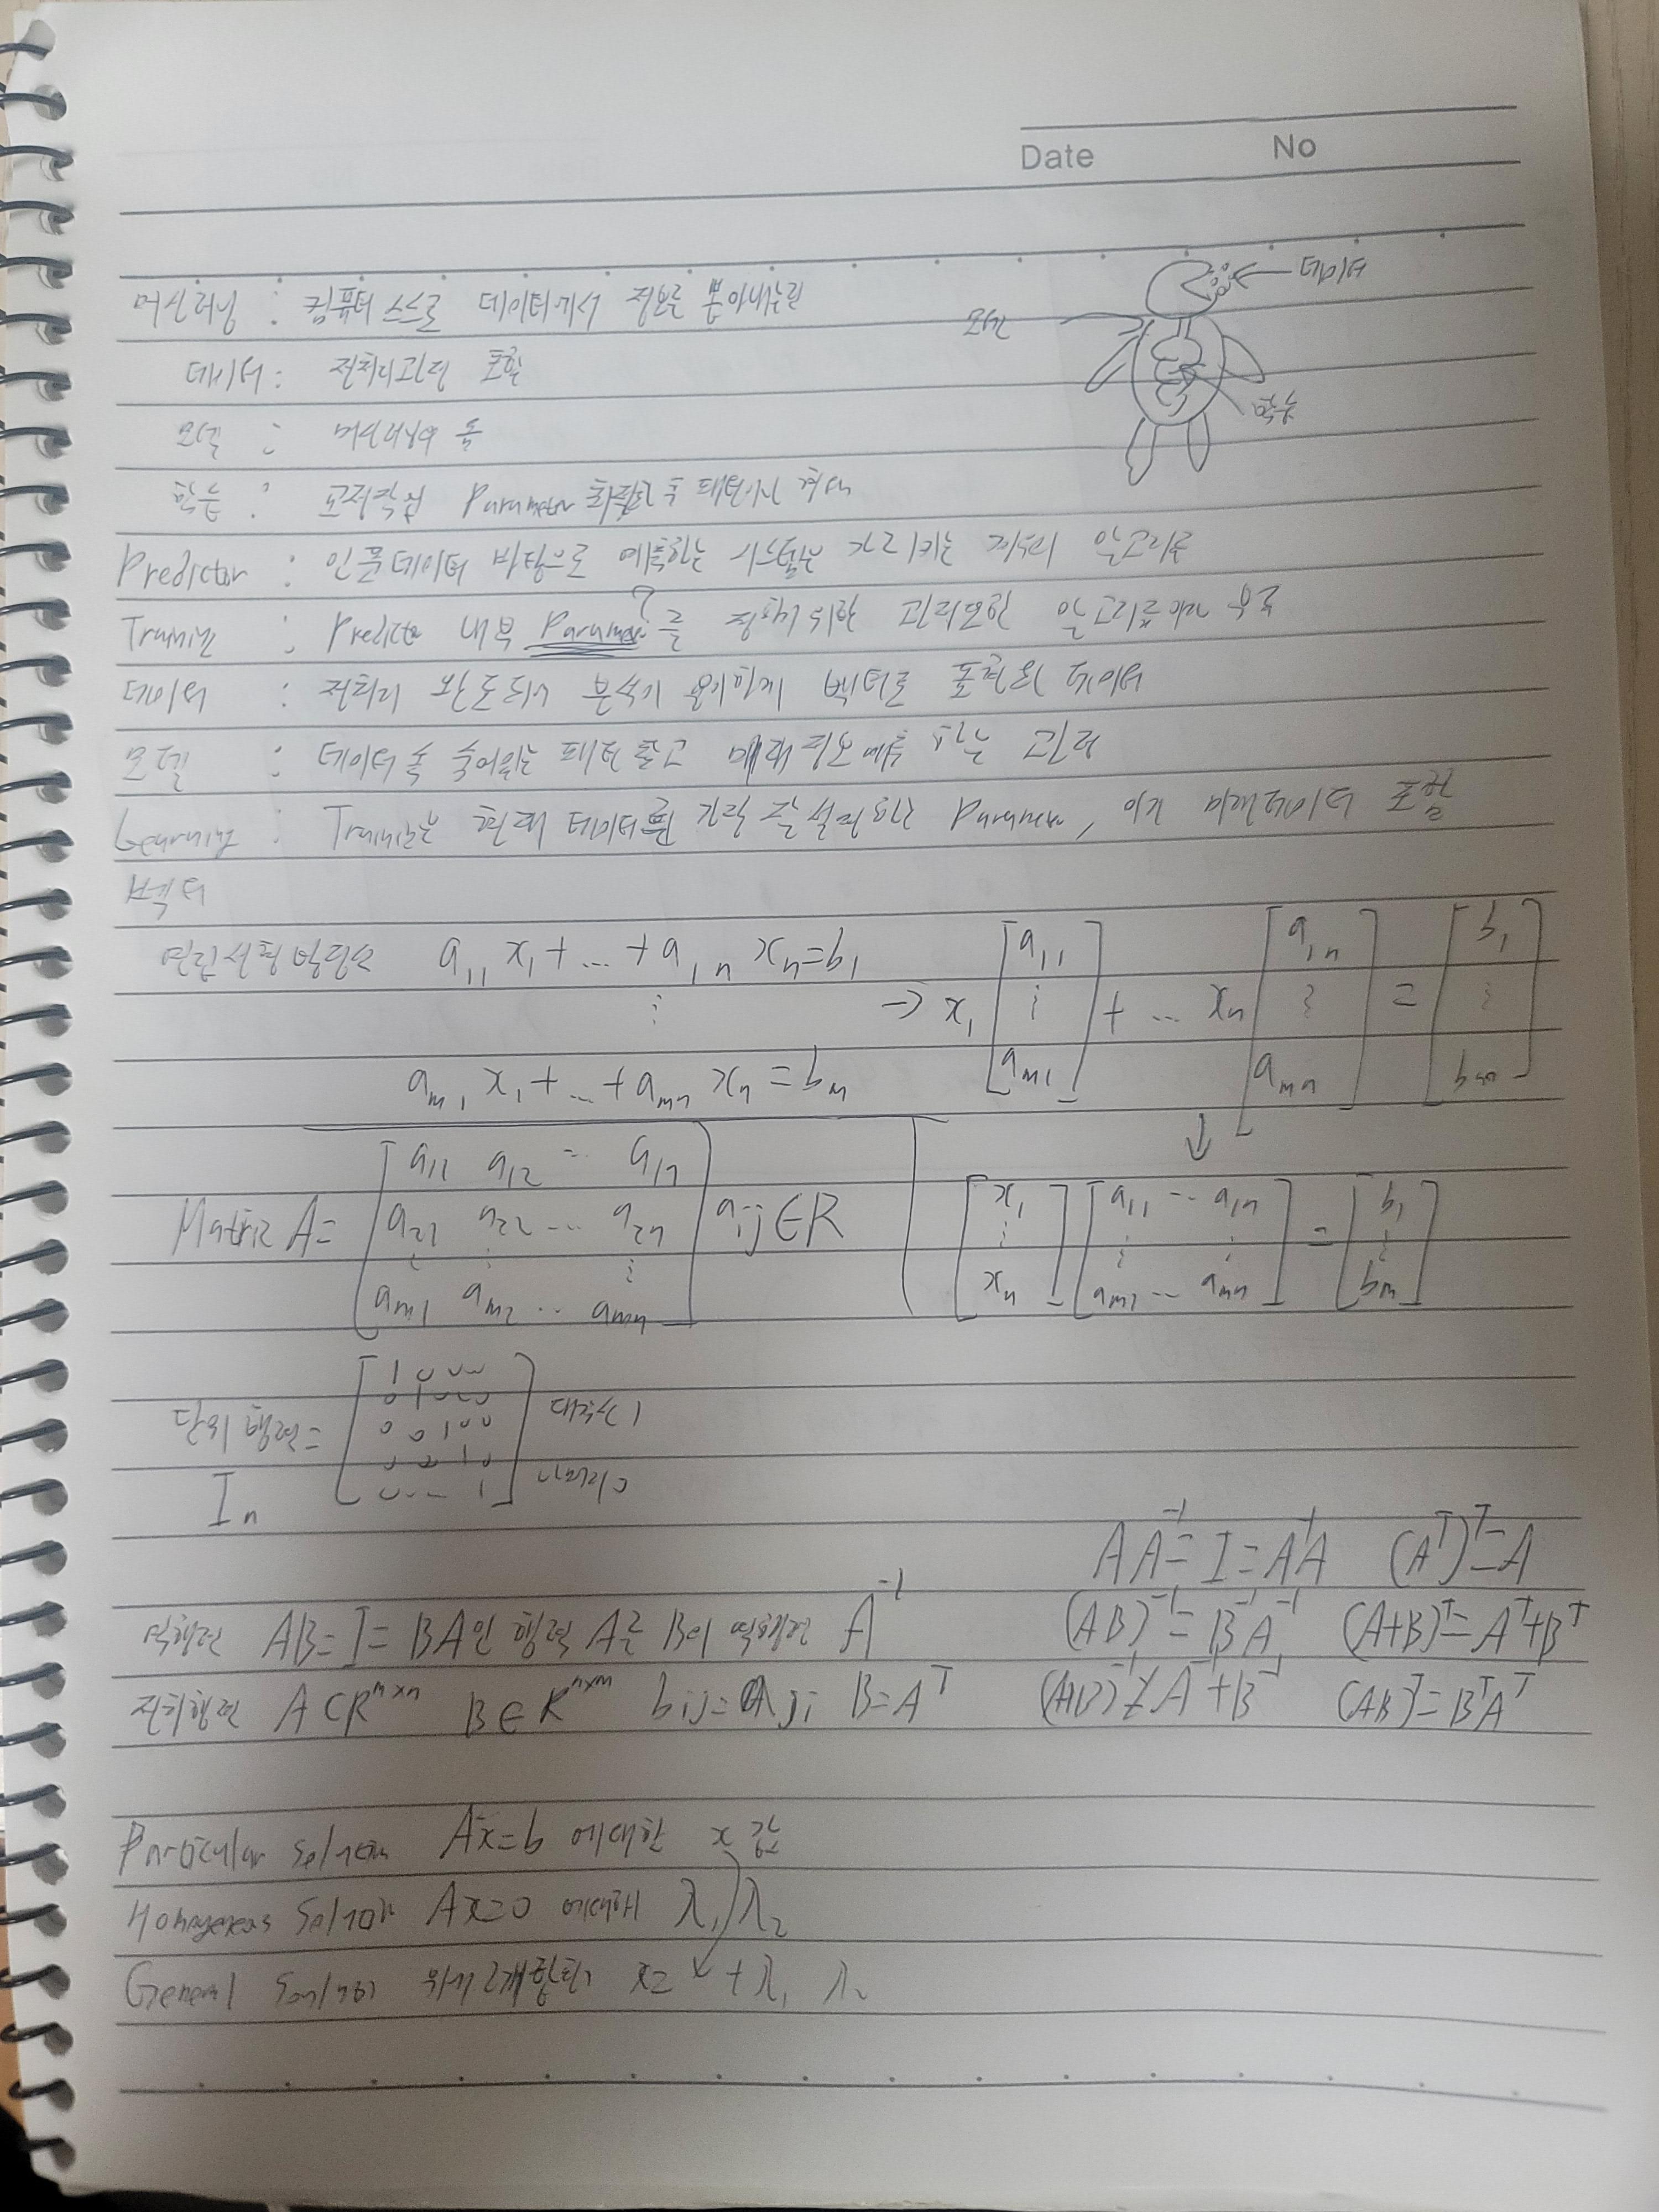 Date No
데이터
머신러닝 : 컴퓨터 스스로 데이터에서 정보를 뽑아내는
모델
데이터 : 전처리과정 포함
수학
모델 : 머신러닝의 틀
학습 : Parameter 최적화 후
Predictor : 인풋데이터 바탕으로 예측하는 시스템을 가리키는 알고리즘
Training : Predictor 내부 를 위한
데이터 : 전처리 완료되어 분석이 용이하게 벡터로 표현된 데이터
모델 : 데이터 속 숨어있는 패턴 찾고 미래 정보 예측 하는 과정
Learning : Training은 현재 데이터를 가장 잘 설명하는 이게 미래데이터 포함
벡터
연립선형방정식 a11 x1 + ... + a1n xn = b1
⋮
am1 x1 + ... + amn xn = bm
→ x1 [a11 ⋮ am1] + ... xn [a1n ⋮ amn] = [b1 ⋮ bm]
↓
Matrix A = [a11 a12 ... a1n
a21 a22 ... a2n
⋮ ⋮ ⋮
am1 am2 ... amn] aij ∈ R
[x1 ⋮ xn] [a11 ... a1n ⋮ ⋮ am1 ... amn] = [b1 ⋮ bm]
단위행렬 = 대각이 1
In
AA⁻¹ = I = A⁻¹A (Aᵀ)ᵀ = A
역행렬 AB = I = BA인 행렬 A는 B의 역행렬 A⁻¹ (AB)⁻¹ = B⁻¹A⁻¹ (A+B)ᵀ = Aᵀ+Bᵀ
전치행렬 B ∈ Rⁿˣᵐ bij = aji B = Aᵀ (A+B)⁻¹ ≠ A⁻¹+B⁻¹ (AB)ᵀ = BᵀAᵀ
Particular Solution Ax = b 에대한 x 값
Homogeneous Solution Ax = 0 에대해 λ1, λ2
General Solution 위에 2개 합치기 x = x + λ1 λ2